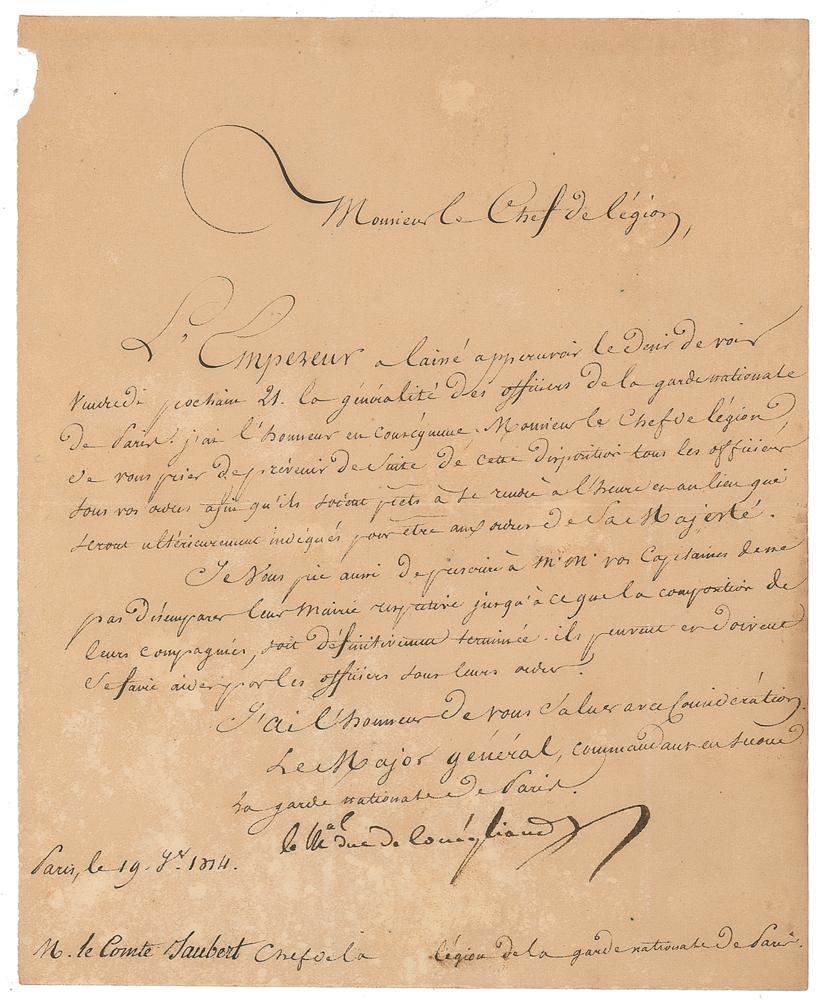 Monsieur le Chef de légion,
L'Empereur a laissé appercevoir le désir de voir
Vendredi prochain 21. la généralité des officiers de la garde nationale
de Paris. j'ai l'honneur en conséquence, Monsieur le Chef de légion,
de vous prier de prévenir de suite de cette disposition tous les officiers
sous vos ordres afin qu'ils soient prêts à se rendre à l'heure et au lieu qui
seront ultérieurement indiqués pour être aux ordres de Sa Majesté.
Je Vous prie aussi de prescrire à M.M. vos Capitaines de ne
pas désemparer leur Mairie respective jusqu'à ce que la composition de
leurs compagnies, soit définitivement terminée. ils peuvent et doivent
se faire aider par les officiers sous leurs ordres.
J'ai l'honneur de vous saluer avec Considération.
Le Major général, commandant en second
la garde nationale de Paris.
le Mal duc de Conégliano
Paris, le 19. 1814.
M. le Comte Jaubert Chef de la légion de la garde nationale de Paris.